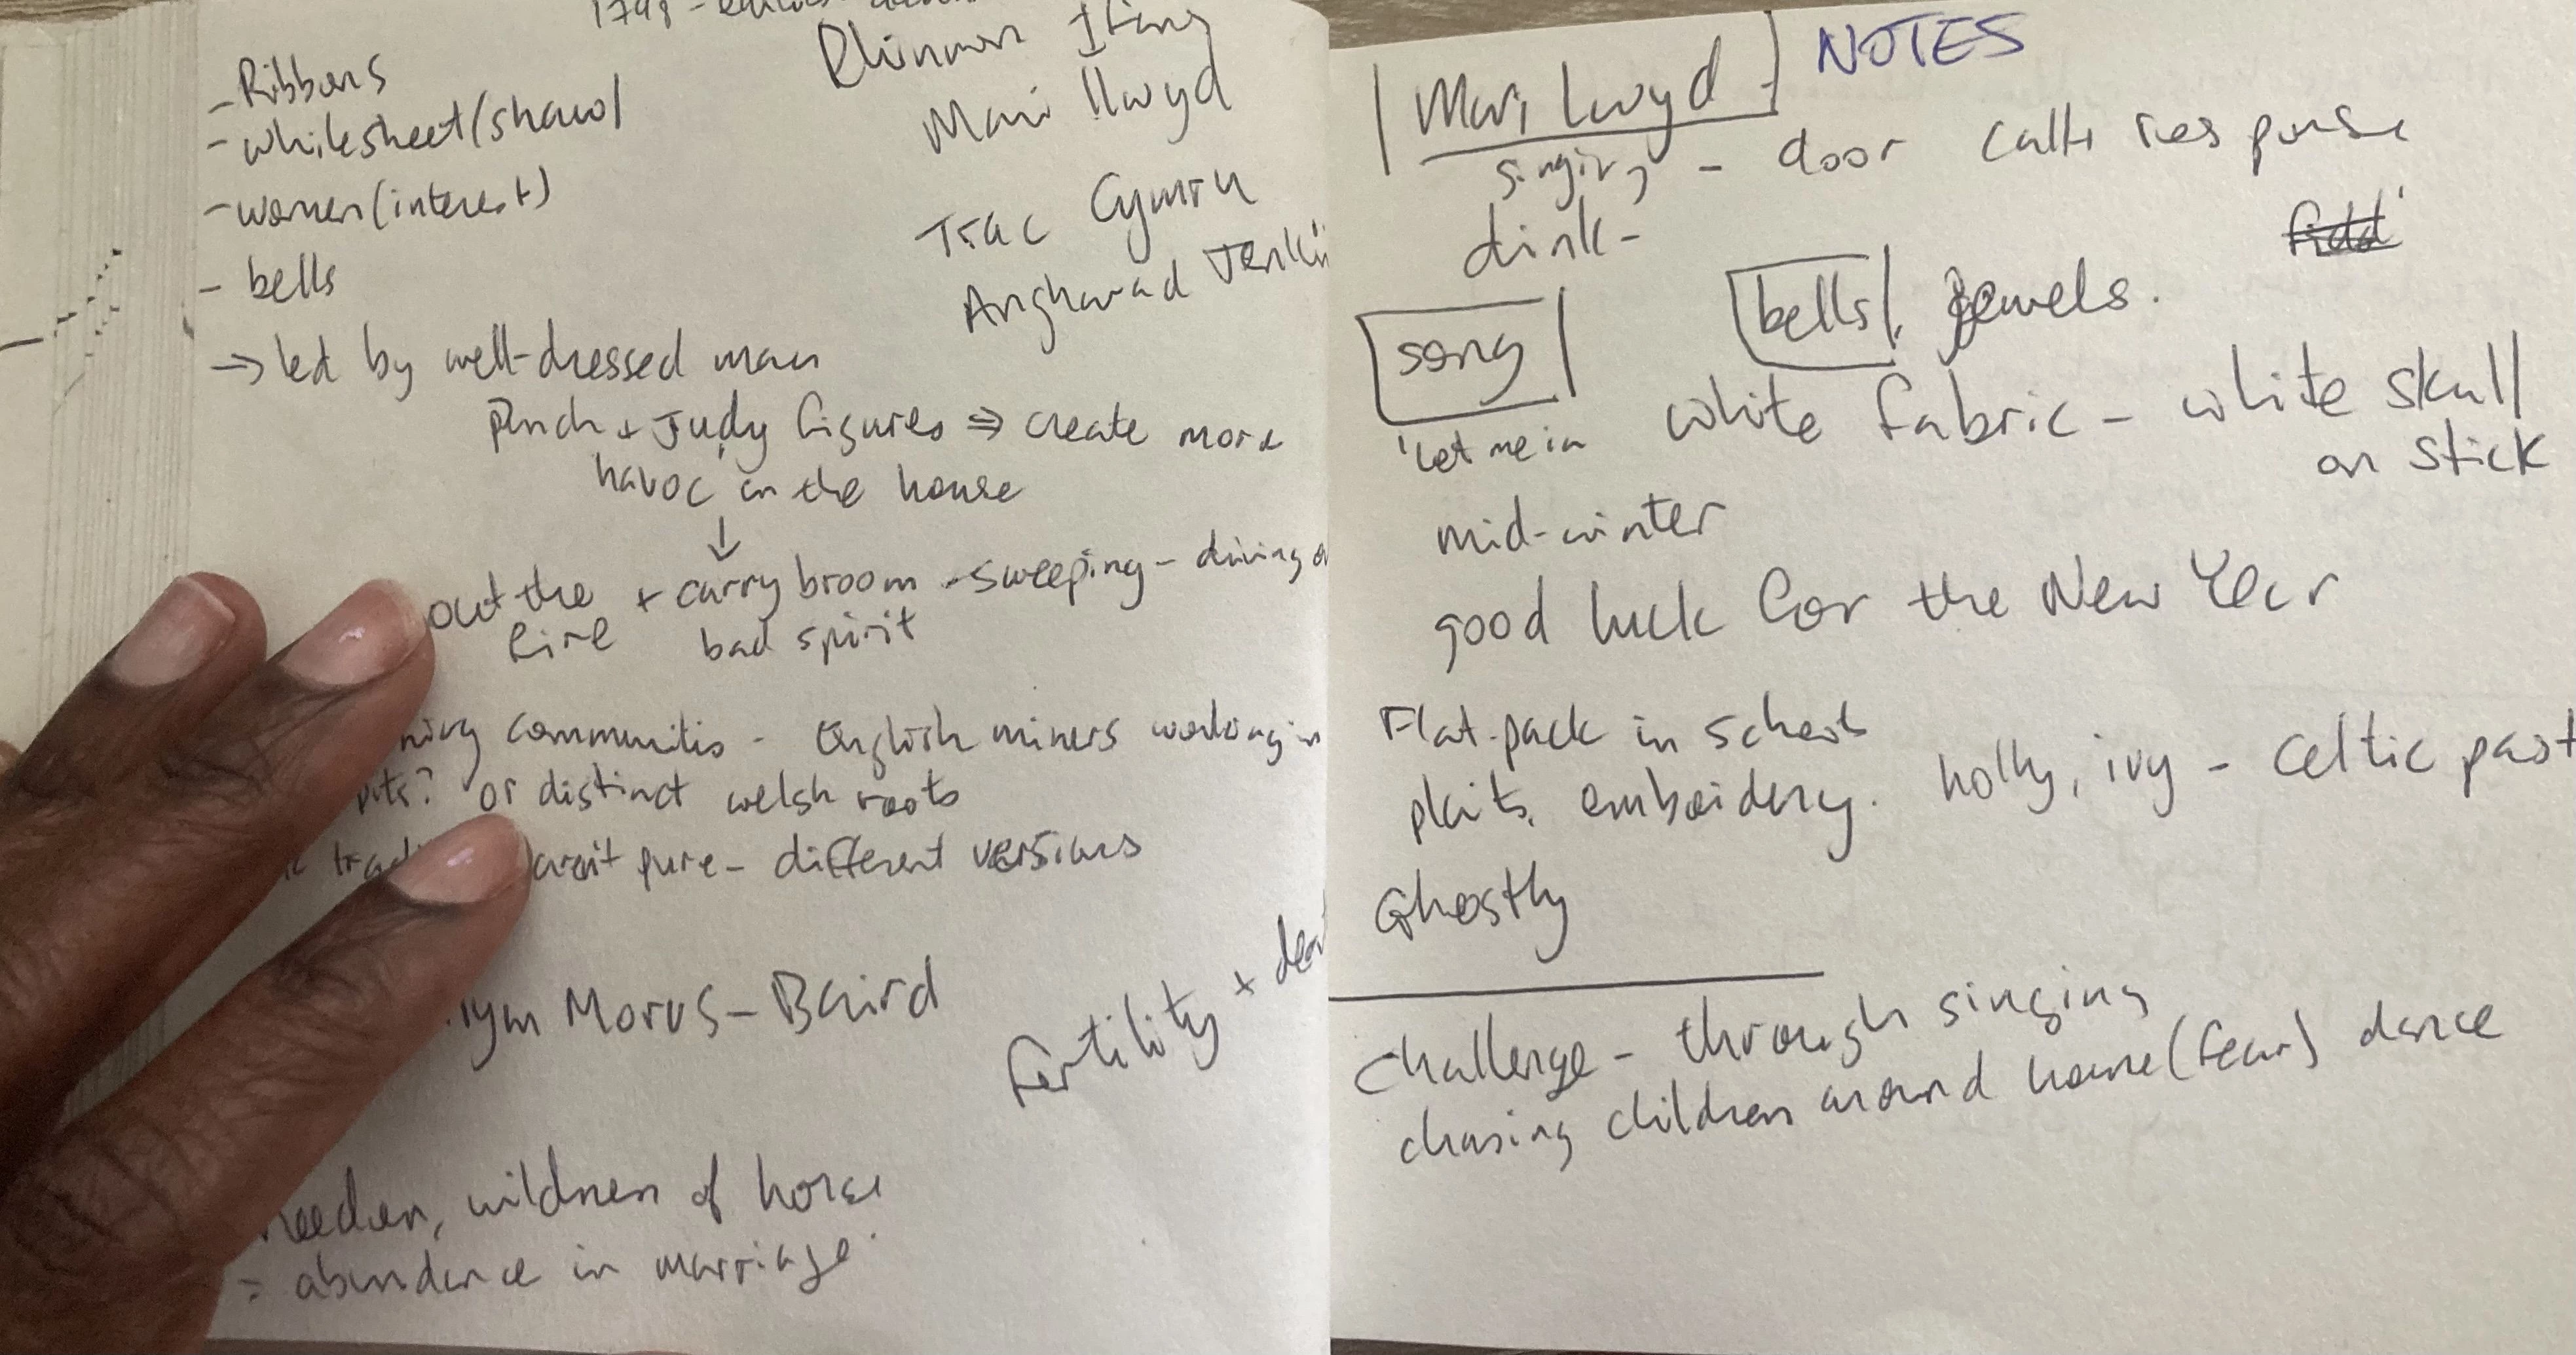 - Ribbons
- whitesheet/shawl
- women (interest)
- bells
Mari llwyd
Trac Cymru
Angharad
→ led by well-dressed man
Punch + Judy figures ⇒ create more
havoc in the house
↓
out the + carry broom - sweeping - driving
fire bad spirit
communities - English miners working in
pits? or distinct welsh roots
aren't pure - different versions
Morus-Baird
Fertility +
wildness of horse
= abundance in marriage.
Mari Lwyd NOTES
singing - door call + response
dink-
song bells, jewels.
'Let me in white fabric - white skull
on stick
mid-winter
good luck for the New Year
Flat-pack in schools
plaits, emboidery. holly, ivy - celtic past
Ghostly
Challenge - through singing
chasing children around home (fear) dance